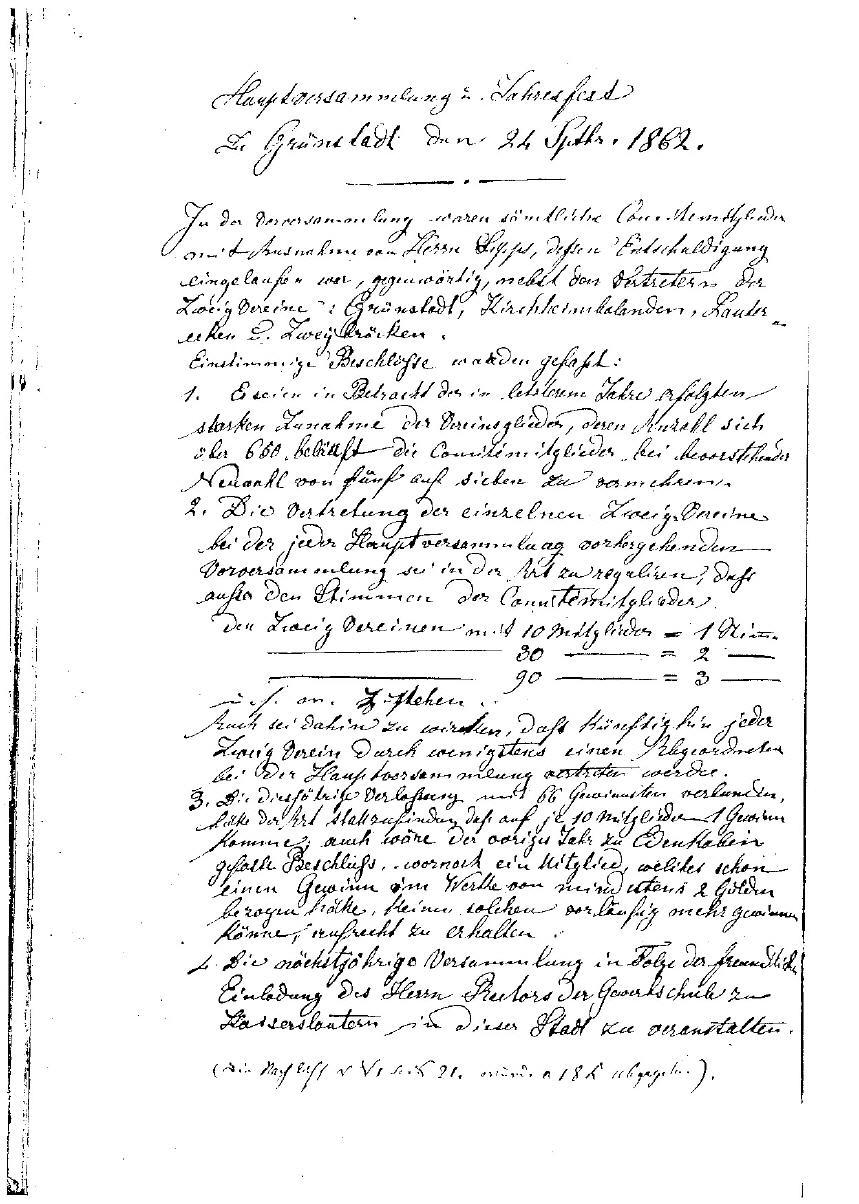 Hauptversammlung u. Jahresfest
Zu Grünstadt den 24 Sptbr. 1862.
In der Vorversammlung waren sämtliche Comitémitglieder
mit Ausnahme von Herrn Sipps, dessen Entschuldigung
eingelaufen war, gegenwärtig, nebst den Vertretern der
Zweig Vereine: Grünstadt, Kirchheimbolanden, Lauter-
ecken u. Zweybrücken.
Einstimmige Beschlüsse wurden gefaßt:
1. Es seien in Betracht der in letzterem Jahre erfolgten
starken Zunahme der Vereinsglieder, deren Anzahl sich
über 660 beläuft die Comitémitglieder bei bevorstehender
Neuwahl von fünf auf sieben zu vermehren.
2. Die Vertretung der einzelnen Zweig-Vereine
bei der jeder Hauptversammlung vorhergehenden
Vorversammlung sei in der Art zu reguliren, daß
außer den Stimmen der Comitémitglieder
den Zweig Vereinen mit 10 Mitglieder = 1 Stimme
30 = 2
90 = 3
u. s. w. zustehen.
Auch sei dahin zu wirken, daß künftighin jeder
Zweig Verein durch wenigstens einen Abgeordneten
bei der Hauptversammlung vertreten werde.
3. Die diesjährige Verlosung mit 66 Gewinnsten verbunden,
hätte der Art stattzufinden, daß auf je 10 Mitglieder 1 Gewinn
komme; auch wäre der voriges Jahr zu Edenkoben
gefaßte Beschluß, wornach ein Mitglied, welches schon
einen Gewinn im Werthe von mindestens 2 Gulden
bezogen hätte, keinen solchen vorläufig mehr gewinnen
könne, aufrecht zu erhalten.
4. Die nächstjährige Versammlung in Folge der freundlichen
Einladung des Herrn Rectors der Gewerbschule zu
Kaiserslautern in dieser Stadt zu veranstalten.
21. 18